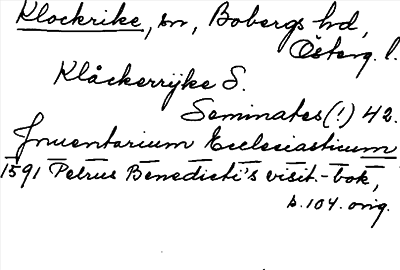 Klockrike, sn, Bobergs hd,
Österg. l.
Klåckerrijke S.
Seminates(!) 42.
Inuentarium Ecclesiasticum
1591 Petrus Benedicti's visit.-bok,
s. 104. orig.